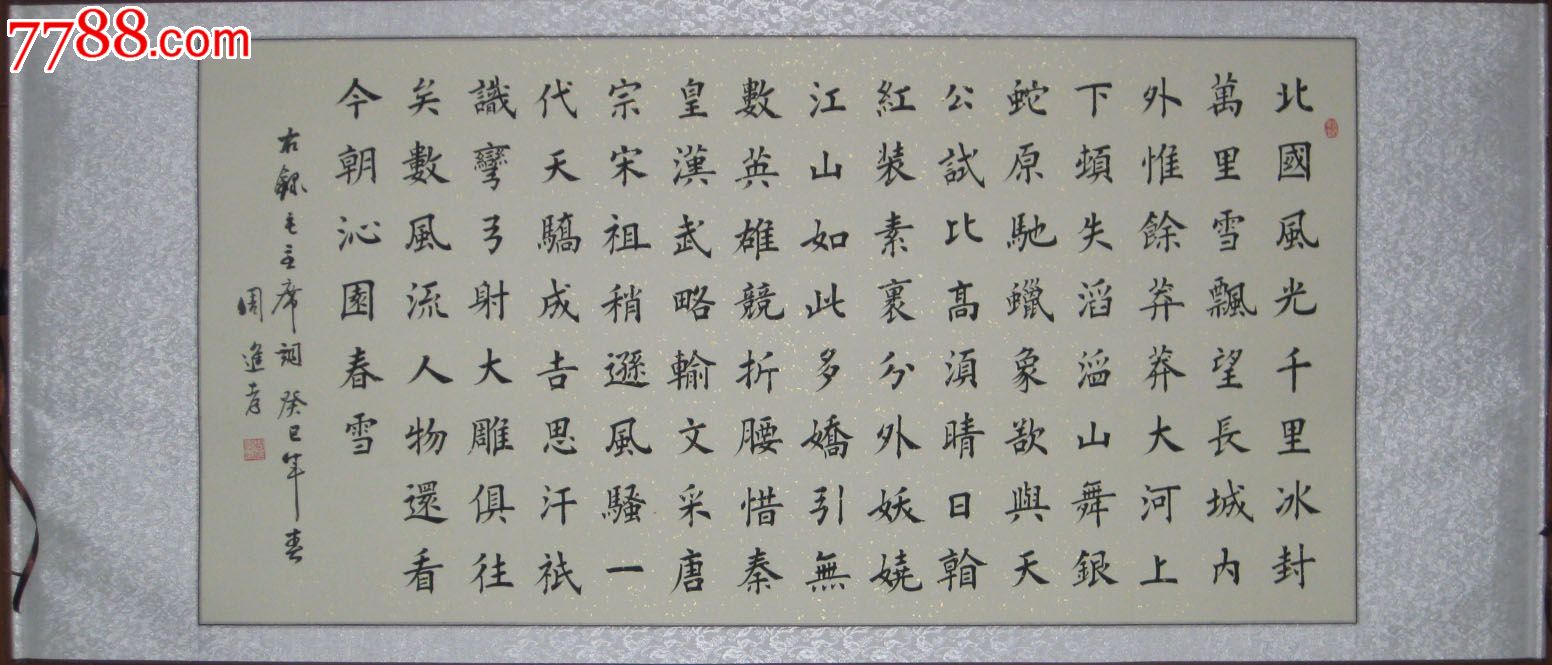 7788.com
北國風光千里冰封
萬里雪飄望長城内
外惟餘莽莽大河上
下頓失滔滔山舞銀
蛇原馳蠟象欲與天
公試比高須晴日看
紅裝素裹分外妖嬈
江山如此多嬌引無
數英雄競折腰惜秦
皇漢武略輸文采唐
宗宋祖稍遜風騷一
代天驕成吉思汗祗
識彎弓射大雕俱往
矣數風流人物還看
今朝沁園春雪
右錄毛主席詞癸巳年春
周進孝